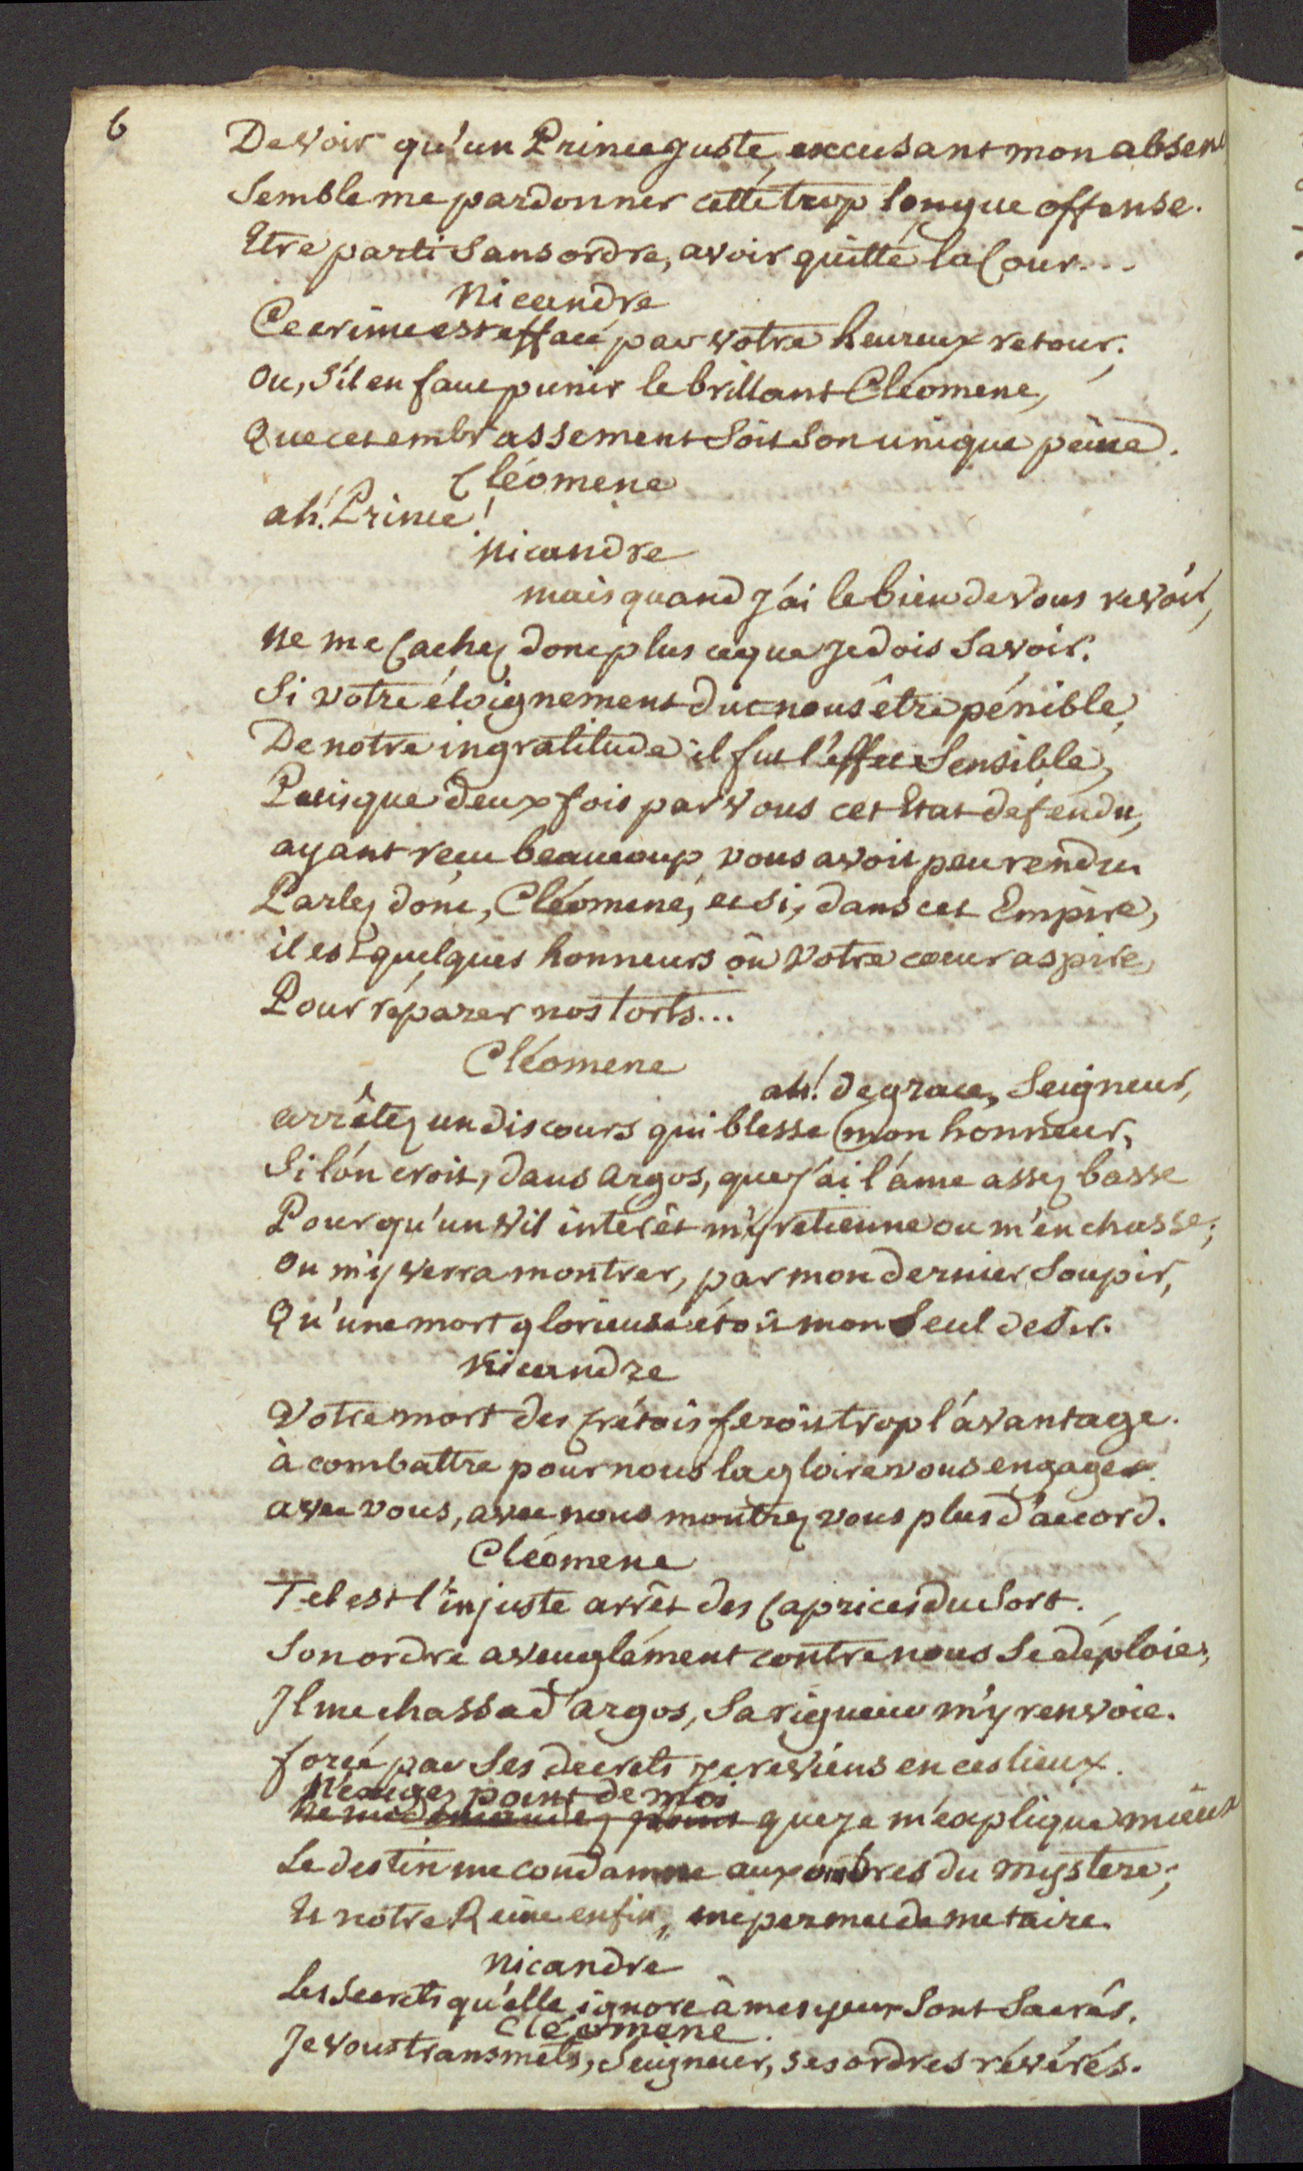 6
De voir qu'un Prince juste, excusant mon absen
Semble me pardonner cette trop longue offense.
Etre parti sans ordre, avoir quitté la Cour....
Nicandre
Ce crime est effacé par votre heureux retour;
ou, s'il en faut punir le brillant Cléomene,
Que cet embrassement soit son unique peine.
Cléomene
ah! Prince!
Nicandre
mais quand j'ai le bien de vous revoir,
Ne me cachez donc plus ce que je dois savoir.
Si votre éloignement dut nous être pénible,
De notre ingratitude il fut l'effet sensible,
Puisque deux fois par vous cet Etat défendu,
ayant reçu beaucoup, vous avoit peu rendu.
Parlez donc, Cléomene, et si, dans cet Empire,
il est quelques honneurs où votre coeur aspire,
Pour réparer nos torts...
Cléomene
ah! de grace, Seigneur,
arrêtez un discours qui blesse mon honneur,
Si l'on croit, dans argos, que j'ai l'âme assez basse
Pour qu'un vil intérêt m'y retienne ou m'en chasse;
on m'y verra montrer, par mon dernier soupir,
Qu'une mort glorieuse étoit mon seul desir.
Nicandre
Votre mort des Crétois feroit trop l'avantage.
à combattre pour nous la gloire vous engage.
avec vous, avec nous montrez vous plus d'accord.
Cléomene
Tel est l'injuste arrêt des caprices du sort.
Son ordre aveuglément contre nous se déploie;
Il me chassa d'argos, sa rigueur m'y renvoie.
forcé par ses decrets je reviens en ces lieux.
N'exigez point de moi
ne me demandez point que je m'explique mieux
Le destin me condamne aux ombres du mystere;
Et notre Reine enfin, me permet de me taire.
Nicandre
Les secrets qu'elle ignore à mes yeux sont sacrés.
Cléomene
Je vous transmets, Seigneur, ses ordres révérés.